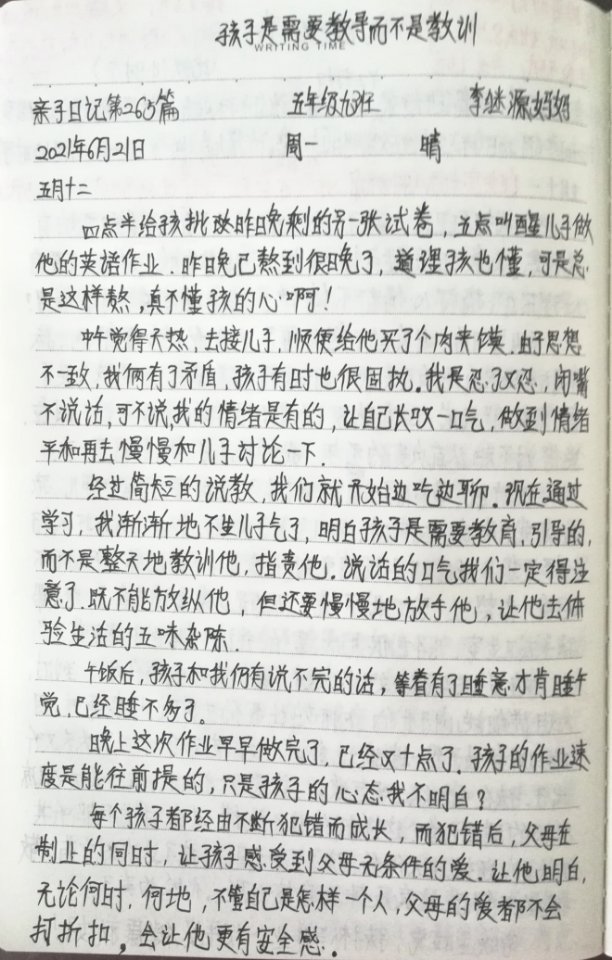 孩子是需要教导而不是教训
WRITING TIME
亲子日记第265篇 五年级九班 李继源妈妈
2021年6月21日 周一 晴
五月十二
四点半给孩批改昨晚剩的另一张试卷，五点叫醒儿子做
他的英语作业.昨晚已熬到很晚了，道理孩也懂，可是总
是这样熬，真不懂孩的心啊！
中午觉得天热，去接儿子，顺便给他买了个肉夹馍.由于思想
不一致，我俩有了矛盾，孩子有时也很固执.我是忍了又忍，闭嘴
不说话，可不说，我的情绪是有的，让自己长叹一口气，做到情绪
平和再去慢慢和儿子讨论一下.
经过简短的说教，我们就开始边吃边聊.现在通过
学习，我渐渐地不生儿子气了，明白孩子是需要教育，引导的，
而不是整天地教训他，指责他。说话的口气我们一定得注
意了.既不能放纵他，但还要慢慢地放手他，让他去体
验生活的五味杂陈.
午饭后，孩子和我仍有说不完的话，等着有了睡意才肯睡午
觉，已经睡不多了。
晚上这次作业早早做完了，已经又十点了.孩子的作业速
度是能往前提的，只是孩子的心态我不明白？
每个孩子都经由不断犯错而成长，而犯错后，父母在
制止的同时，让孩子感受到父母无条件的爱.让他明白，
无论何时，何地，不管自己是怎样一个人，父母的爱都不会
打折扣，会让他更有安全感.